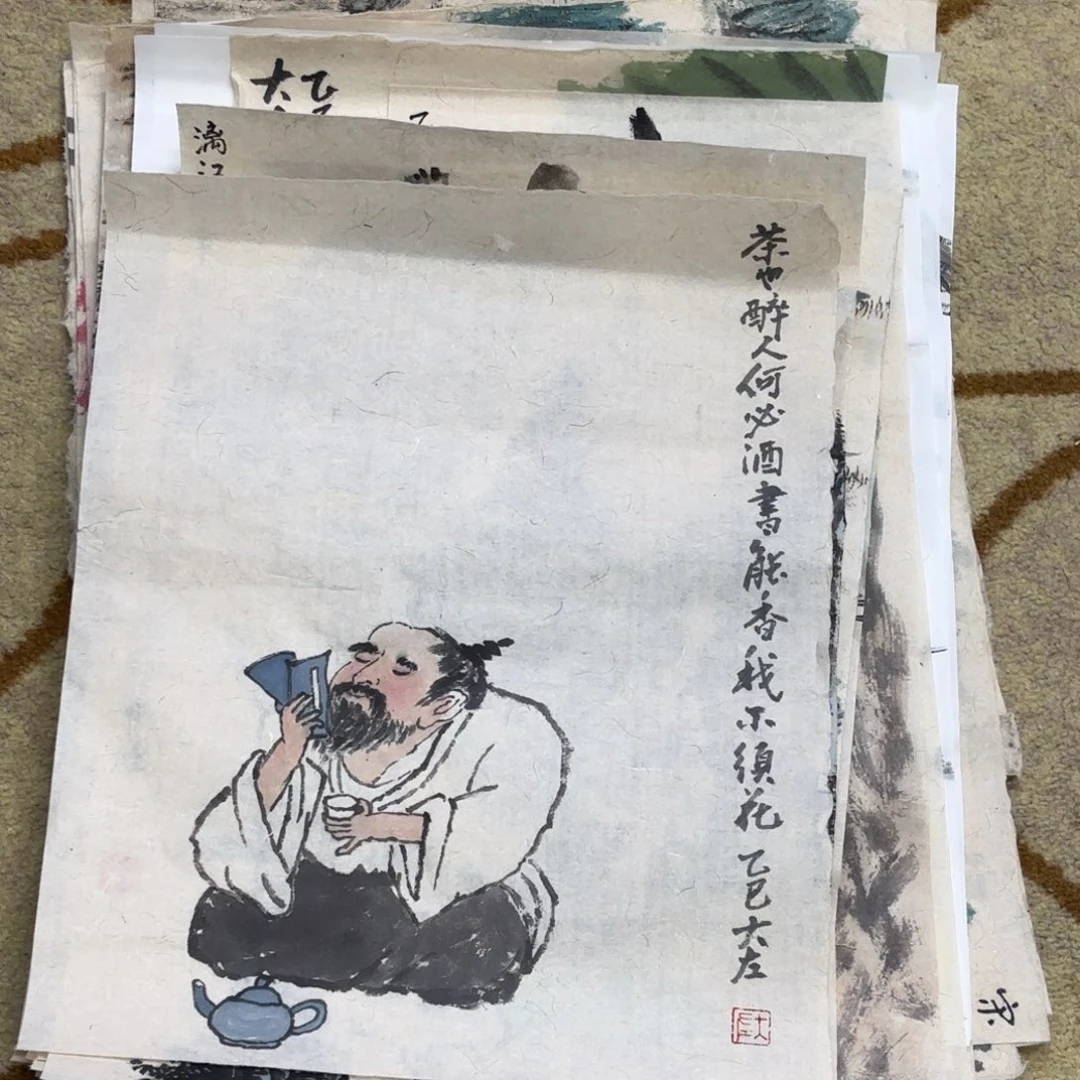 茶也醉人何必酒書能香我不須花 乙巳大左
乙
大
漓江